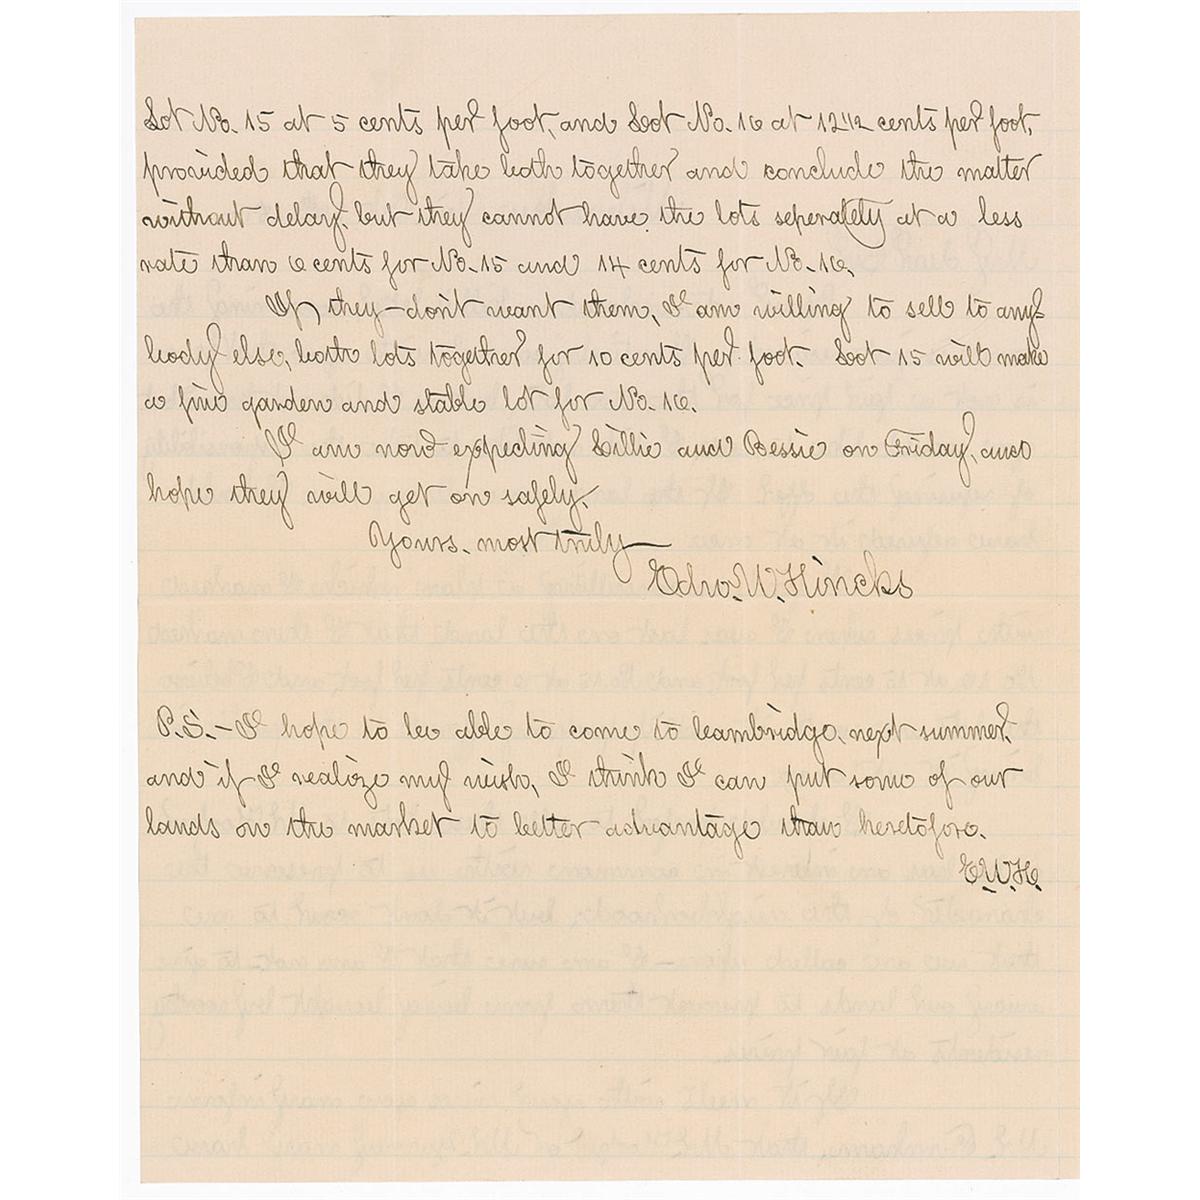 Lot No. 15 at 5 cents per foot, and Lot No. 16 at 12 1/2 cents per foot,
provided that they take both together and conclude the matter
without delay. but they cannot have the lots seperately at a less
rate than 6 cents for No. 15 and 14 cents for No. 16.
If they don't want them, I am willing to sell to any-
body else, both lots together for 10 cents per foot. Lot 15 will make
a fine garden and stable lot for No. 16.
I am now expecting Lillie and Bessie on Friday, and
hope they will get on safely.
Yours. most truly
Edw. W. Hincks
P.S. - I hope to be able to come to Cambridge next summer.
and if I realize my wish, I think I can put some of our
lands on the market to better advantage than heretofore.
E.W.H.